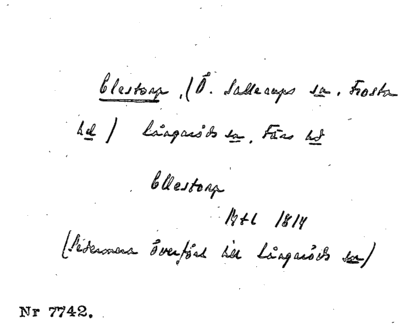 Ellestorp, (Ö. Sallerups sn, Frosta
hd) Långaröds sn, Färs hd
Ellestorp
1814
(Sedermera överförd till Långaröds sn)
Nr 7742.